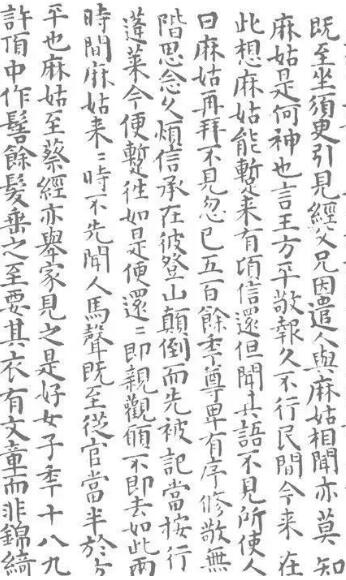 既至坐須臾引見經父兄因遣人與麻姑相聞亦莫知
麻姑是何神也言王方平敬報久不行民間今来在
此想麻姑能蹔来有頃信還但聞其語不見所使人
曰麻姑再拜不見忽已五百餘年尊卑有序修敬無
階思念久煩信承在彼登山顛倒而先被記當按行
蓬萊今便蹔往如是便還〻即親觀願不即去如此兩
時間麻姑来〻時不先聞人馬聲既至從官當半於方
平也麻姑至蔡經亦舉家見之是好女子年十八九
許頂中作髻餘髮垂之至要其衣有文章而非錦綺